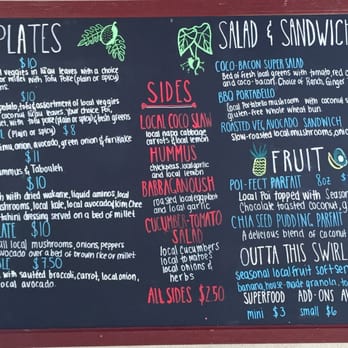 PLATES
$10
veggies in ki'au leaves with a choice
or millet with Tofu Poke (plain or spicy)
$10
potato, tofu, assortment of local veggies
coconut ki'au leaves. Your choice Poi,
with tofu poke (plan or spicy) & fresh greens
(Plain or spicy) $8
onion, avocado, green onion & furikake
$11
Hummus, & Tabouleh
$10
with dried wakame, liquid aminos, local
mushrooms, local kale, local avocado, Kim Chee
tahini dressing served on a bed of millet
$10
local mushrooms, onions, peppers
avocado over a bed of brown rice or millet
$7.50
with sauteed broccoli, carrot, local onion,
local avocado.
SIDES
LOCAL COCO SLAW
local napa cabbage
carrots & local lemon
HUMMUS
chickpeas, local garlic
and local lemon
BABBAGANOUSH
roasted local eggplant
and local garlic
CUCUMBER-TOMATO
SALAD
local cucumbers
local tomatoes
local onions &
herbs
ALL SIDES $2.50
SALAD & SANDWICH
COCO-BACON SUPER SALAD
Bed of fresh local greens with tomato, red
and coco-bacon. Choice of Ranch, Ginger
BBQ PORTABELLO
Local Portabello mushroom with coconut
gluten-free wheat bun
ROASTED VEG, AVOCADO SANDWICH
Slow-roasted local mushrooms, onion,
FRUIT
POI-FECT PARFAIT 8oz $
Local Poi topped with Seasonal
Chocolate toasted coconut, g
CHIA SEED PUDDING PARFAIT
A delicious blend of coconut
OUTTA THIS SWIRL
seasonal local fruit soft-ser
banana, house-made granola, to
SUPERFOOD ADD-ONS AV
mini $3 small $6